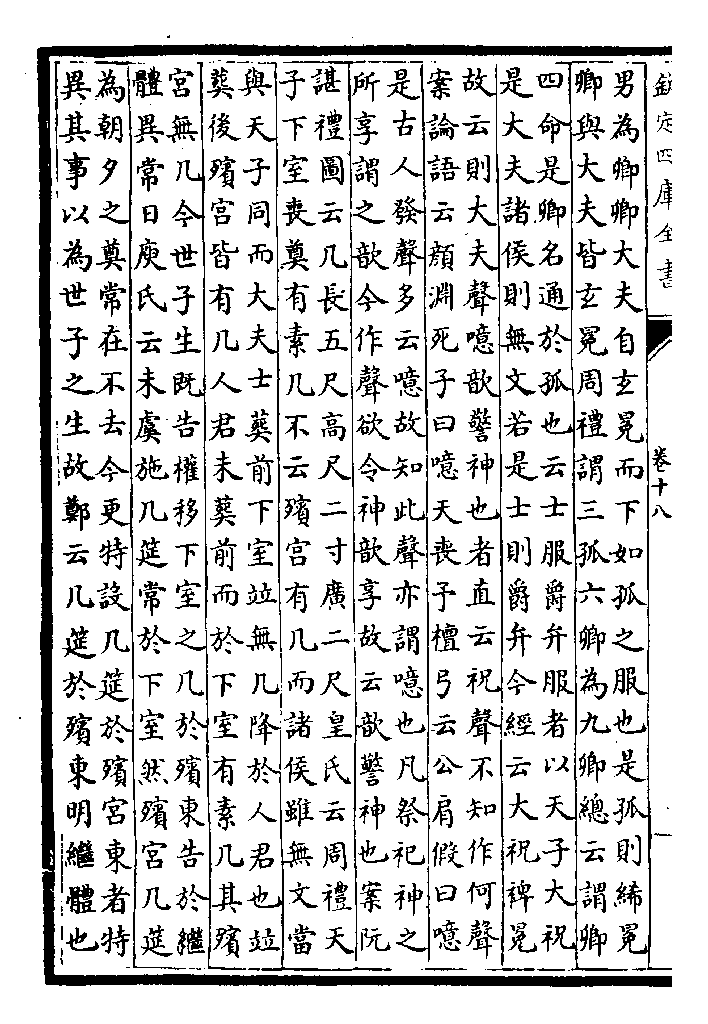 欽定四庫全書
卷十八
男為卿卿大夫自玄冕而下如孤之服也是孤則絺冕
卿與大夫皆玄冕周禮謂三孤六卿為九卿總云謂卿
四命是卿名通於孤也云士服爵弁服者以天子大祝
是大夫諸侯則無文若是士則爵弁今經云大祝裨冕
故云則大夫聲噫歆警神也者直云祝聲不知作何聲
案論語云顔淵死子曰噫天喪予檀弓云公肩假曰噫
是古人發聲多云噫故知此聲亦謂噫也凡祭祀神之
所享謂之歆今作聲欲令神歆享故云歆警神也案阮
諶禮圖云几長五尺高尺二寸廣二尺皇氏云周禮天
子下室喪奠有素几不云殯宮有几而諸侯雖無文當
與天子同而大夫士葬前下室竝無几降於人君也竝
葬後殯宮皆有几人君未葬前而於下室有素几其殯
宮無几今世子生既告權移下室之几於殯東告於繼
體異常日庾氏云未虞施几筵常於下室然殯宮几筵
為朝夕之奠常在不去今更特設几筵於殯宮東者特
異其事以為世子之生故鄭云几筵於殯東明繼體也